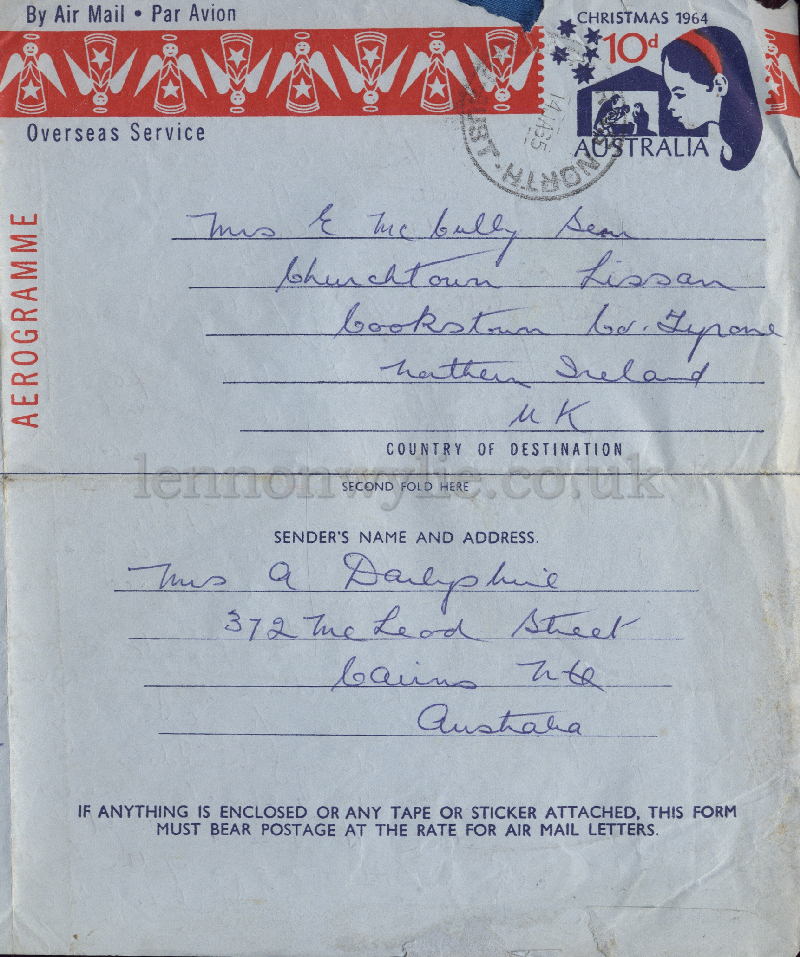 By Air Mail • Par Avion
CHRISTMAS 1964
10d
AUSTRALIA
Overseas Service
NORTH
AEROGRAMME
Mrs E McCully Senr
Churchtown Lissan
Cookstown Co. Tyrone
Northern Ireland
U K
COUNTRY OF DESTINATION
lennonwylie.co.uk
SECOND FOLD HERE
SENDER'S NAME AND ADDRESS.
Mrs A
372 McLeod Street
Cairns N Q
Australia
IF ANYTHING IS ENCLOSED OR ANY TAPE OR STICKER ATTACHED, THIS FORM
MUST BEAR POSTAGE AT THE RATE FOR AIR MAIL LETTERS.